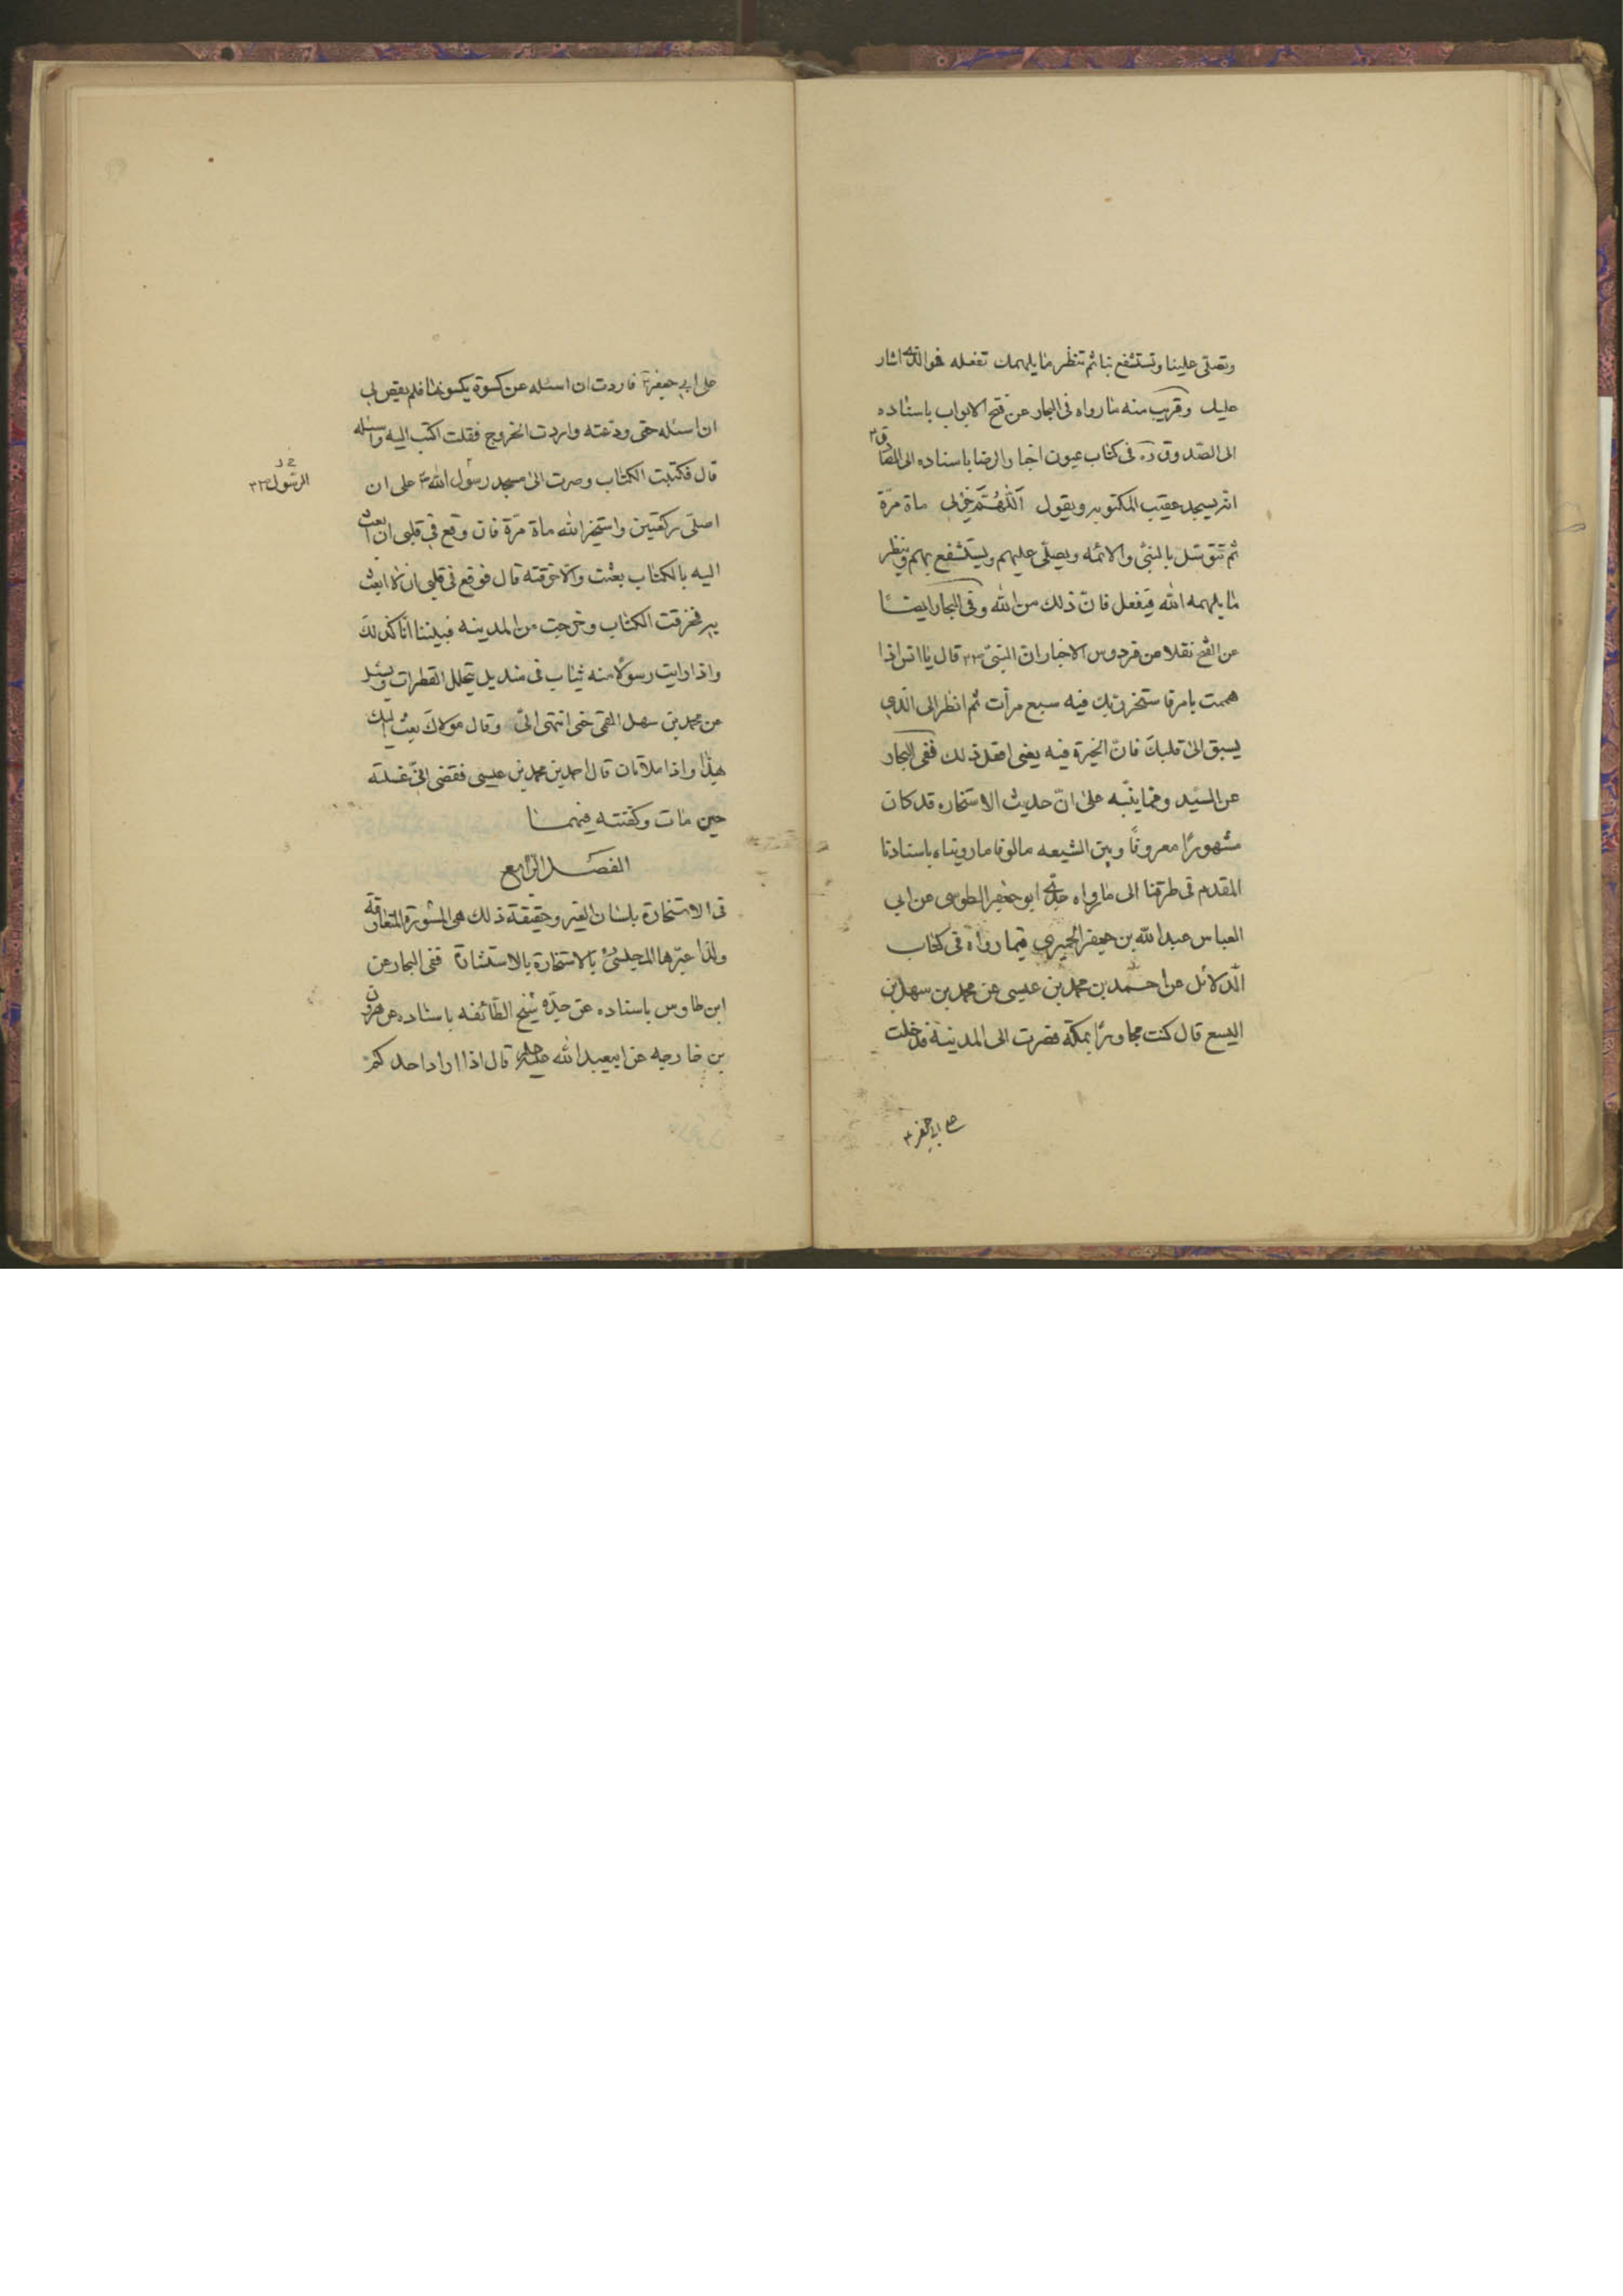 وتصلی علینا وتستشفع بنا ثم تنظر ما یلهمك تفعله فهو الذی اشار
علیك وقریب منه ما رواه فی البحار عن فتح الابواب باسناده
الی الصدوق ره فی کتاب عیون اخبار الرضا باسناده الی الصادق ع
انه یسجد عقیب المکتوبه ویقول اَللّهُمَّ خِرْلی ماة مرّة
ثم تتوسّل بالنبیّ والائمه ویصلّی علیهم ویستشفع بهم وینظر
ما یلهمه الله فیفعل فانّ ذلك من الله وفی البحار ایضًا
عن الفتح نقلا من فردوس الاخبار ان النبیّ ص قال یا انس اذا
هممت بامر فاستخر ربّك فیه سبع مرّات ثم انظر الی الّذی
یسبق الی قلبك فانّ الخیرة فیه یعنی افعل ذلك ففی البحار
عن السیّد ومما ینبّه علی انّ حدیث الاستخاره قد کان
مشهورًا معروفًا وبین الشیعه مالوفا ما رویناه باسنادنا
المقدم فی طرقنا الی ما رواه جدّی ابو جعفر الطوسی عن ابی
العباس عبدالله بن جعفر الحمیری فیما رواه فی کتاب
الدّلائل عن احمد بن محمد بن عیسی عن محمد بن سهل بن
الیسع قال کنت مجاورًا بمکّة فصرت الی المدینة فدخلت
علی ابی جعفر ع
علی ابی جعفر ع فاردت ان اسئله عن کسوة یکسونیها فلم یقض لی
ان اسئله حتی ودّعته واردت الخروج فقلت اکتب الیه واسئله
قال فکتبت الکتاب وصرت الی مسجد رسول الله ص علی ان
الرسول ص
اصلّی رکعتین واستخیر الله ماة مرّة فان وقع فی قلبی ان ابعث
الیه بالکتاب بعثت والّا خرقته قال فوقع فی قلبی ان لا ابعث
به فخرقت الکتاب وخرجت من المدینه فبیننا انا کذلك
واذا رایت رسولًا منه ثیاب فی مندیل یتخلل القطرات ویسئل
عن محمد بن سهل القمی حتی انتهی الیّ وقال مولاك بعث الیك
بهذا واذا ملائتان قال احمد بن محمد بن عیسی فقضی انّی غسلته
حین مات وکفنته فیهما
الفصل الرابع
فی الاستخارة بلسان الغیر وحقیقة ذلك هی المشورة المتعارفة
ولذا عبّرها المجلسیّ بالاستخارة بالاستشارة ففی البحار عن
ابن طاوس باسناده عن جدّه شیخ الطائفه باسناده عن هرون
بن خارجه عن ابیعبدالله علیه قال اذا اراد احدکم